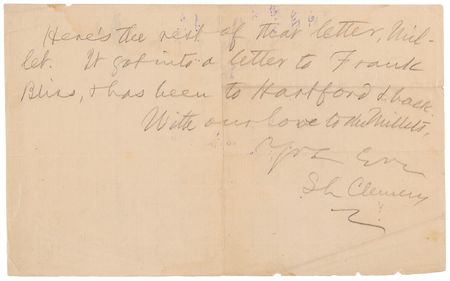 Here's the rest of that letter, Mil-
let. It got into a letter to Frank
Bliss, & has been to Hartford & back.
With our love to the Millets,
Yrs Ever
SL Clemens